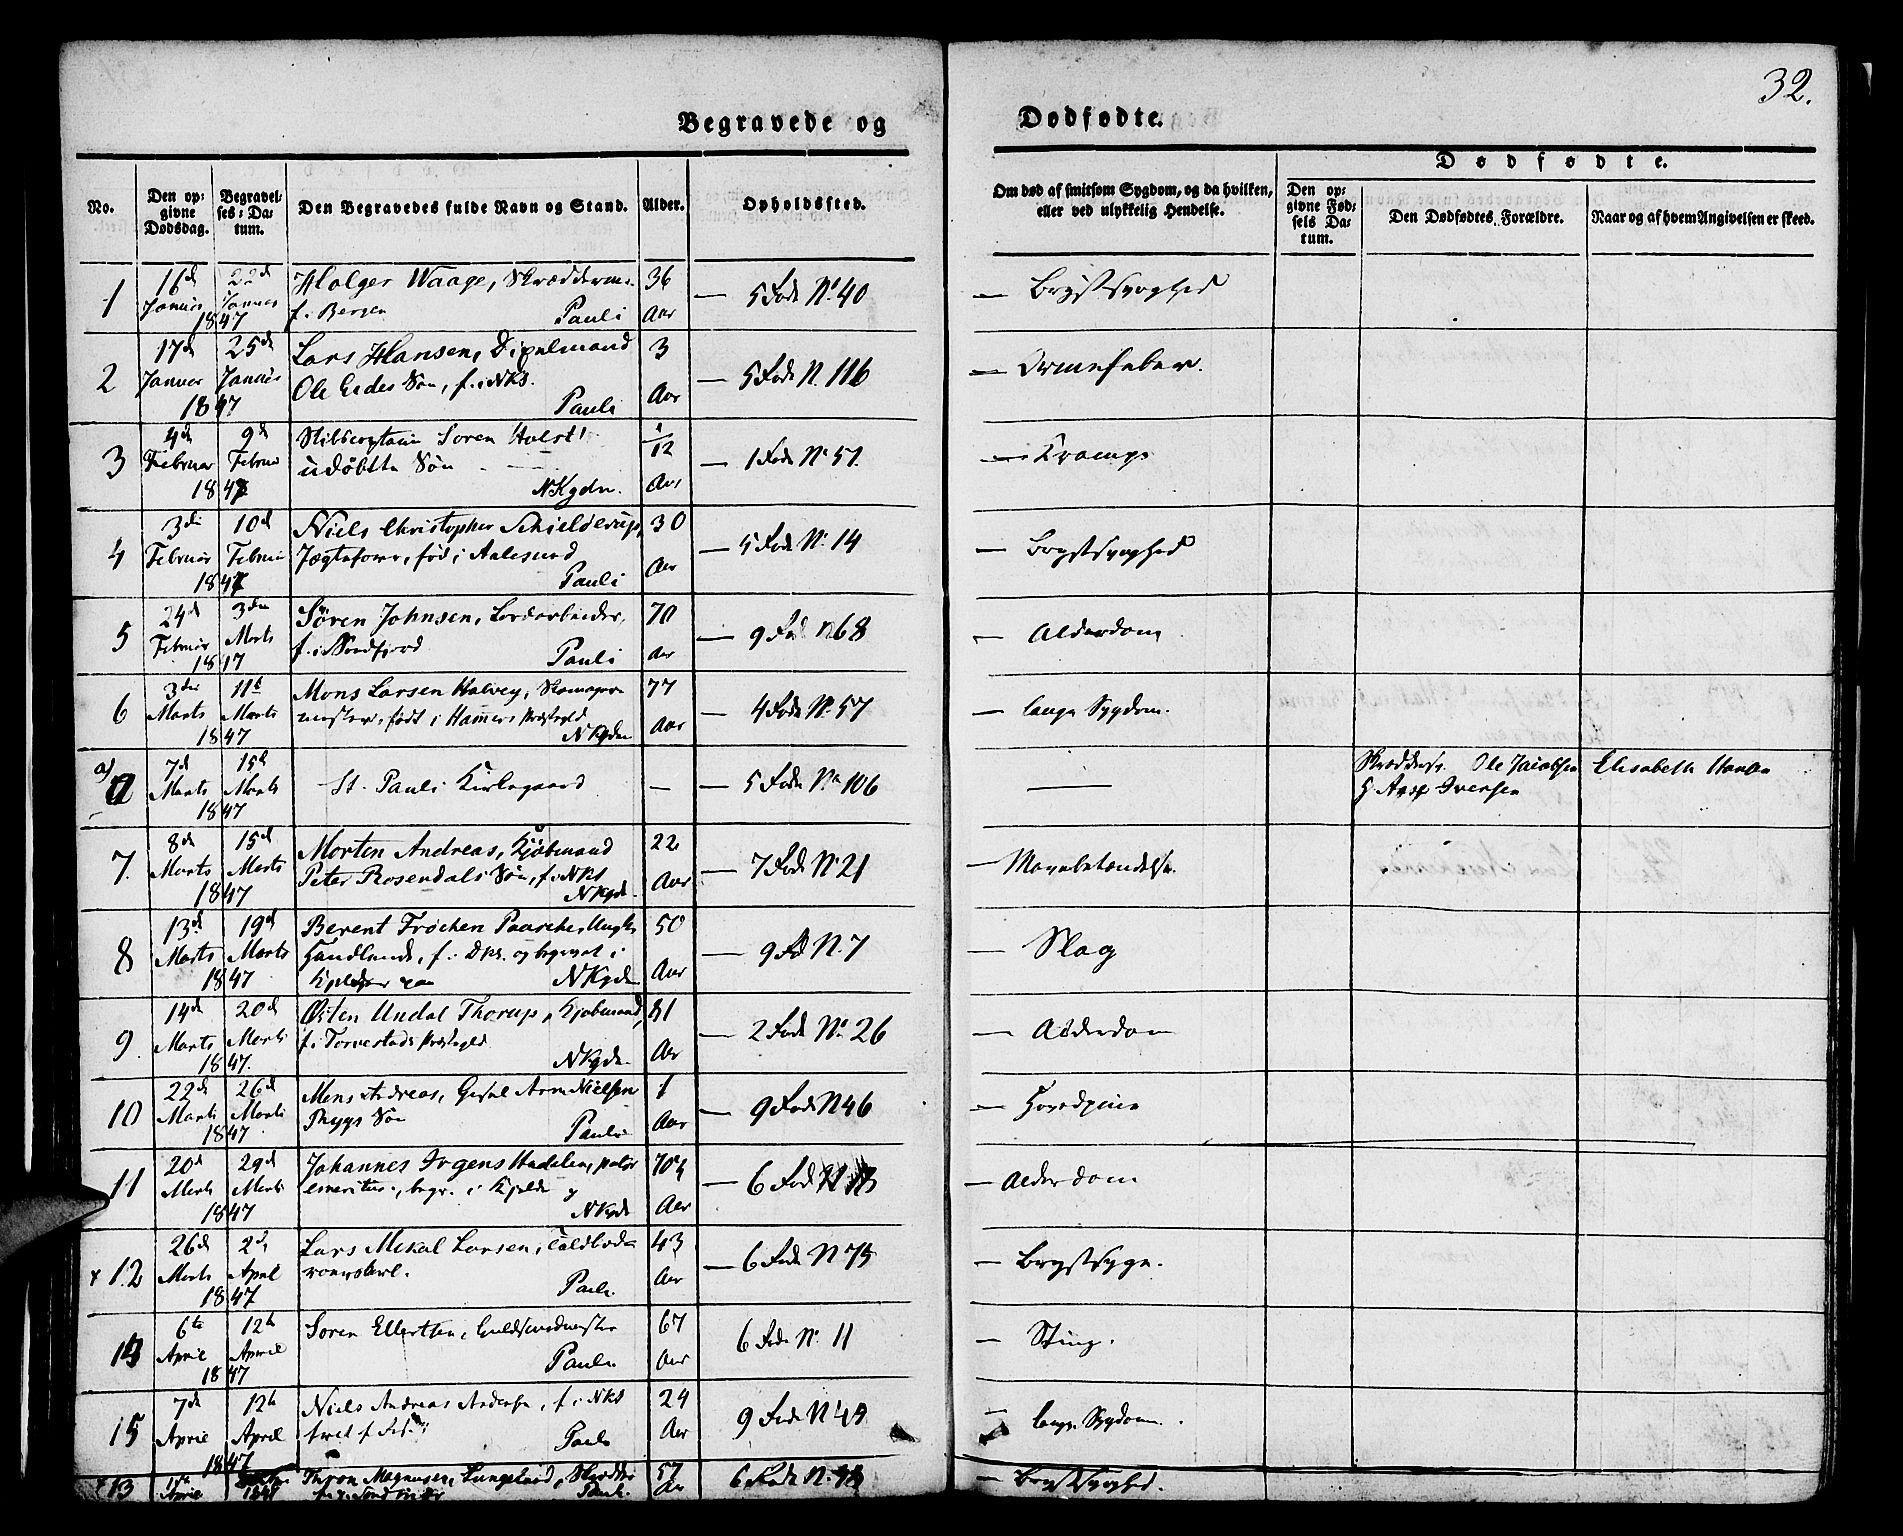 32.
Begravede og Dødfødte.
Dødfødte.
No.
Den opgivne Dødsdag.
Begravelses-Datum.
Den Begravedes fulde Navn og Stand.
Alder.
Opholdssted.
Om død af smitsom Sygdom, og da hvilken, eller ved ulykkelig Hendelse.
Den opgivne Fødsels Datum.
Den Dødfødtes Forældre.
Naar og af hvem Angivelsen er skeed.
1 16d 22d Holger Waage, 36
Januar Januar f. i Bergen Pauli Aar — 5 Rode No 40 — Brystsyghed
1847
2 17d 25d Lars Hansen, 3
Januar Januar Ole Eides Søn, f. i NKS. Aar — 5 Rode N. 116 — Ormefeber.
1847 Pauli
3 4d 9d Skibscaptain Søren Holst 1/12
Februar Februar udøbte Søn — 1 Rode No 51. — Krampe
1847 NKgdn. Aar
4 3die 10d Niels Christopher Schielderup, 30
Februar Februar født i Aalesund Aar — 5 Rode No 14 — Brystsyghed
1847 Pauli
5 24d 3die Sören Johnsen, 70
Februar Marts f. i Søndfjord Aar — 9 Rode N 68 — Alderdom
1847 Pauli
6 3die 11te Mons Larsen 77
Marts Marts født i Hammers Præstegjeld Aar — 4 Rode No 57 — lang Sygdom.
1847 NKgdn
a) 7d 15d
Marts Marts St. Pauli Kirkegaard — — 5 Rode No 106 — Ole Jacobsen Elisabeth Hansen
1847 Iversen
7. 8de 15d Morten Andreas, Kjøbmand 22
Marts Marts Peter Rosendals Søn, f. i NKS Aar — 7 Rode No 21 — Mavebetændelse.
1847 NKgdn
8 13d 19d Berent Frøchen 50
Marts Marts f. i Dks. og begravet i Aar — 9 Rd N. 7 — Slag
1847 NKgdn
9 14d 20d Østen Undal Thorup, Kjøbmand, 81
Marts Marts f. i Torvestads Præstegjeld Aar — 2 Rode No 26 — Alderdom
1847. NKgdn
10 22d 26d Mons Andreas, Nielsen 1
Marts Marts Søn Aar — 9 Rode N 46
1847 Pauli
11 20d 29d Johannes Irgens pastor
Marts Marts emeritus, begr. i Kjelder — 6 Rode — Alderdom
1847 NKgdn Aar
x 12 26d 2d Lars Mikal Larsen, 43
Marts April Aar — 6 Rode N 75 — Brystsyge.
1847 Pauli
6te 12te Søren Ellertsen, Guldsmedmester 67
April April Aar 6 Rode No 11 — Sting.
1847 Pauli
15 7d 12te Niels Andreas Andersen, f. i NKS 24
April April Aar 9 Rode No 49 — lang Sygdom.
1847 Pauli
13 Magnusen, 57
April 1847 Pauli. Aar 6 Rode — Brystsyghed.